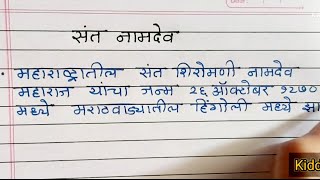 संत नामदेव
• महाराष्ट्रातील संत शिरोमणी नामदेव
महाराज यांचा जन्म २६ ऑक्टोबर १२७०
मध्ये मराठवाड्यातील हिंगोली मध्ये झा
Kidd